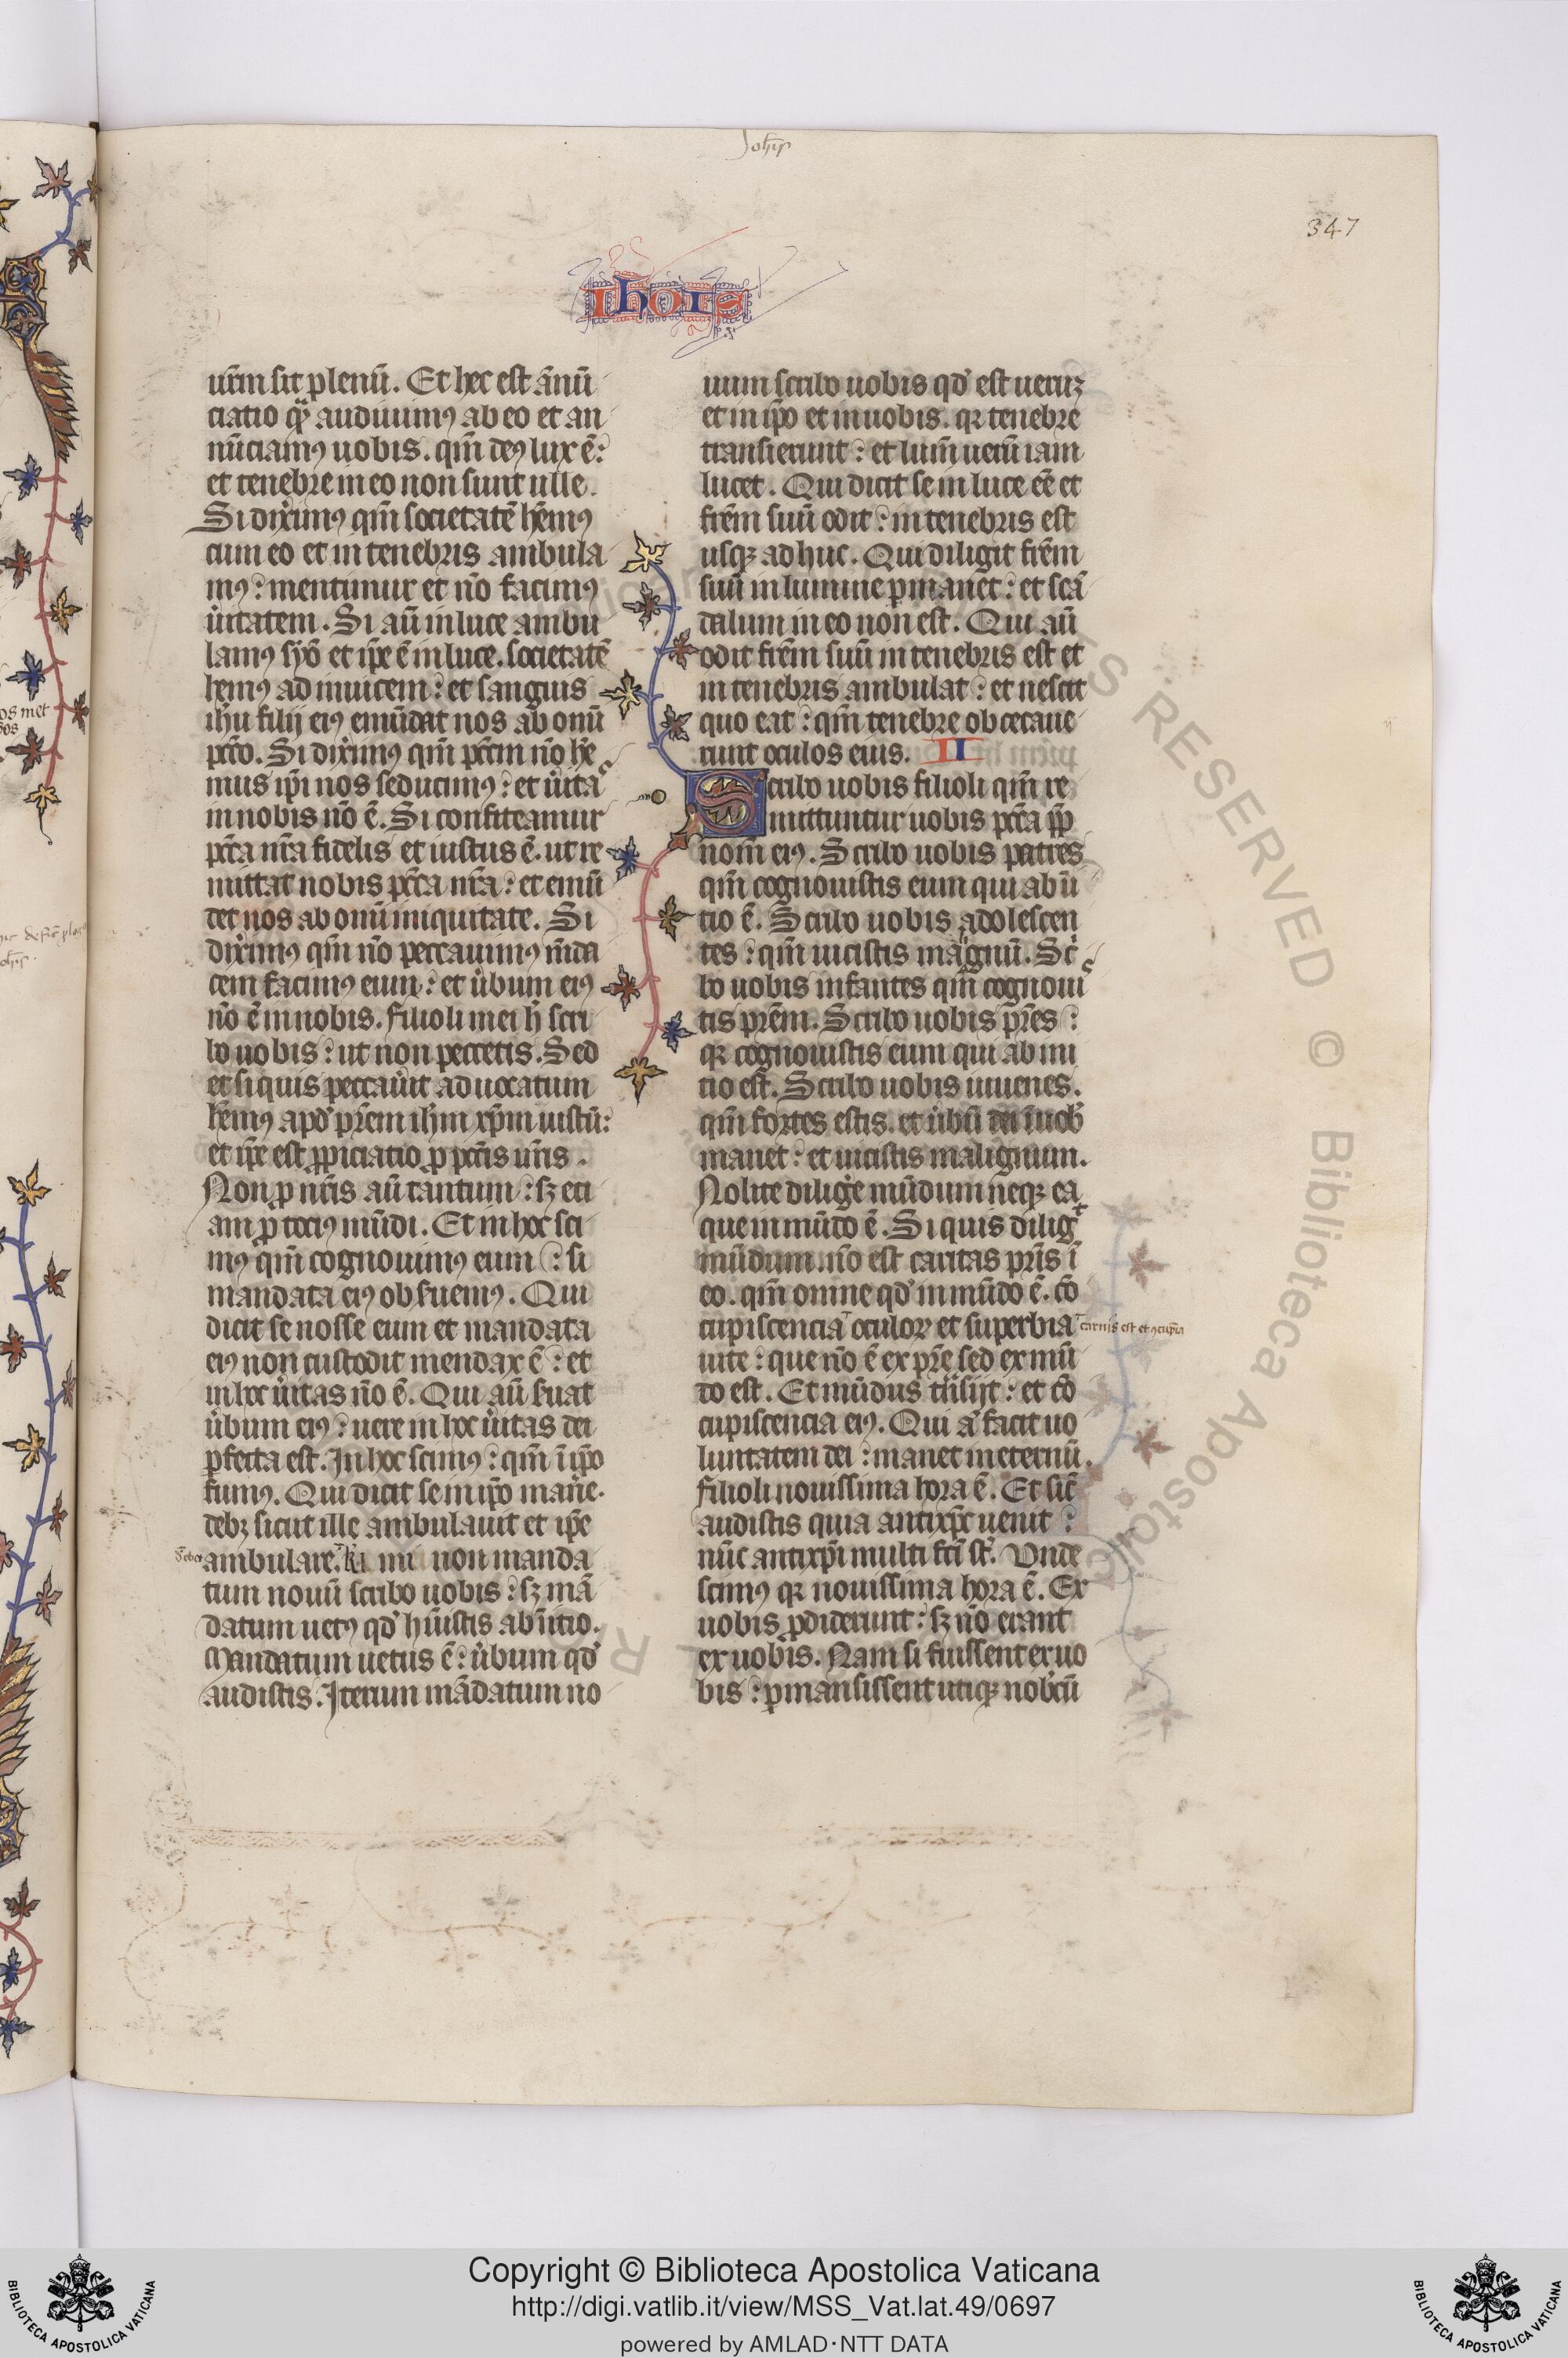 Joh̄is
347
ihōis
ur̄m sit plenū. Et hec est ānū
ciatio quā audiuimꝰ ab eo et an
nūciamꝰ uobis. qm̄ deꝰ lux ē:
et tenebre in eo non sunt ulle.
Si dixerimꝰ qm̄ societatē hēmꝰ
cum eo et in tenebris ambula
mꝰ: mentimur et nō facimꝰ
ůitatem. Si aū in luce ambu
lamꝰ et ip̄e ē in luce. societatē
hemꝰ ad inuicem: et sanguis
ih̄u filij eiꝰ emūdat nos ab om̄i
pctō. Si dixerimꝰ qm̄ pctm̄ nō he
mus ip̄i nos seducimꝰ: et ůitas
in nobis nō ē. Si confiteamur
pctā nr̄a fidelis et iustus ē. ut re
mittat nobis pctā nr̄a: et emū
det nos ab om̄i iniquitate. Si
dixerimꝰ qm̄ nō peccauimꝰ mēda
cem facimꝰ eum: et ůbum eiꝰ
nō ē in nobis. Filioli mei h̄ scri
bo uobis: ut non peccetis. Sed
et si quis peccau̇it aduocatum
hēmꝰ apd̓ pr̄em ih̄m xp̄m iustū:
et ip̄e est ꝓpiciatio ꝓ pctīs ur̄is.
Non ꝓ nr̄is aū tantum: sꝫ eci
am ꝓ tociꝰ mūdi. Et in hoc sci
mꝰ qm̄ cognouimꝰ eum: si
mandata eiꝰ obſuemꝰ. Qui
dicit se nosse eum et mandata
eiꝰ non custodit mendax ē: et
in hoc ůitas nō ē. Qui aū ſuat
ůbum eiꝰ: uere in hoc ůitas dei
ꝑfecta est. In hoc scimꝰ: qm̄ ī ip̄o
sumꝰ. Qui dicit se in ip̄o manē.
debꝫ sicut ille ambulauit et ip̄e
ambulare. kr̄i mi non manda
tum nouū scribo uobis: sꝫ mā
datum uetꝰ qd̓ hūistis ab īitio.
Mandatum uetus ē: ůbum qd̓
audistis. Iterum mādatum no
uum scribo uobis qd̓ est ueruꝫ
et in ip̄o et in uobis. qꝛ tenebre
transierunt: et lum̄ uerū iam
lucet. Qui dicit se in luce ēē et
fr̄em suū odit: in tenebris est
usqꝫ ad huc. Qui diligit fr̄em
suū in lumine ꝑmanet: et scā
dalum in eo non est. Qui aū
odit fr̄em suū in tenebris est et
in tenebris ambulat: et nescit
quo eat: qm̄ tenebre obcecaue
runt oculos eius. II
Scribo uobis filioli qm̄ re
mittuntur uobis pctā ꝓp
nom̄ eiꝰ. Scribo uobis patres
qm̄ cognouistis eum qui ab ī
tio ē. Scribo uobis adolescen
tes: qm̄ uicistis malignū. Sc̓i
bo uobis infantes qm̄ cognoui
tis pr̄em. Scribo uobis pr̄es:
qꝛ cognouistis eum qui ab ini
tio est. Scribo uobis iuuenes.
qm̄ fortes estis. et ůbū dei ī uob̓
manet: et uicistis malignum.
Nolite diliġe mūdum neqꝫ ea
que in mūdo ē. Si quis diligit
mūdum. nō est caritas pr̄is ī
eo. qm̄ omne qd̓ in mūdo ē. cō
cupiscencia oculoꝝ et superbia carnis est et ꝯcupīa
uite: que nō ē ex pr̄e sed ex mū
do est. Et mūdus trāsijt: et cō
cupiscencia eiꝰ. Qui a̓ facit uo
luntatem dei: manet in eternū.
Filioli nouissima hora ē. Et sic̄
audistis quia antixp̄c uenit:
nūc antixp̄i multi fcī st̄. Unde
scimꝰ qꝛ nouissima hora ē. Ex
uobis ꝓdiderunt: sꝫ nō erant
ex uobis. Nam si fuissent ex uo
bis: ꝑmansissent utiqꝫ nob̓cū
Copyright © Biblioteca Apostolica Vaticana
http://digi.vatlib.it/view/MSS_Vat.lat.49/0697
powered by AMLAD·NTT DATA
BIBLIOTECA APOSTOLICA VATICANA
BIBLIOTECA APOSTOLICA VATICANA